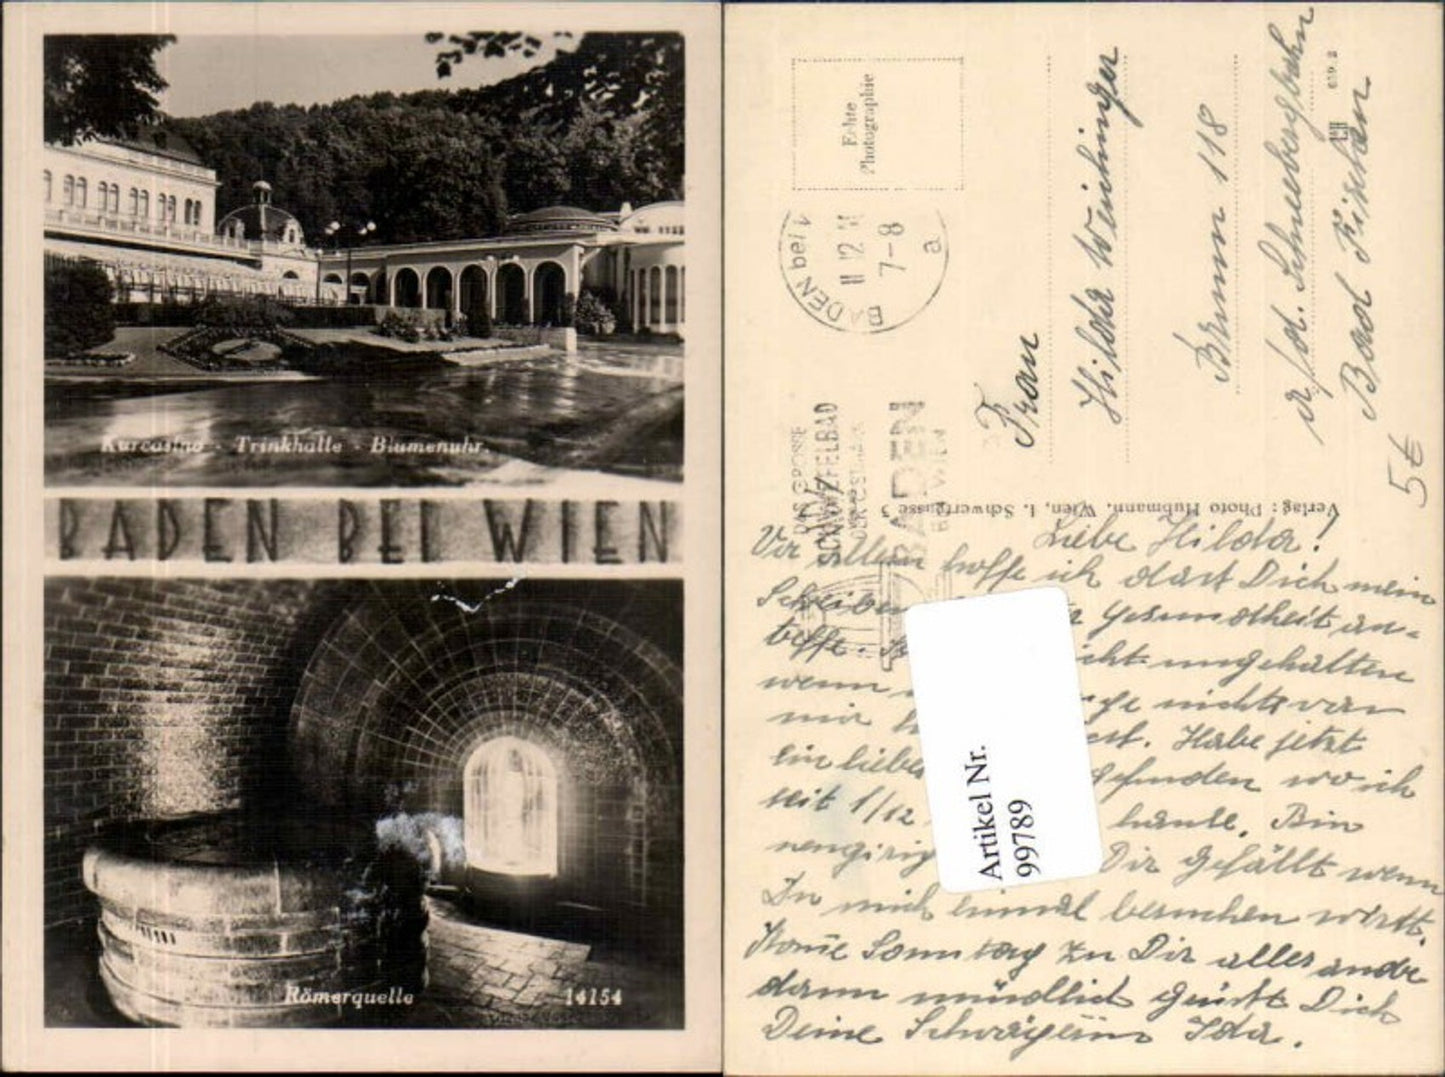 Kurcasino - Trinkhalle - Blumenuhr.
BADEN BEI WIEN
Römerquelle 14154
Echte
Photographie
BADEN bei
12
7-8
a
DAS GROSSE
SCHWEFELBAD
BADEN
BEI WIEN
Verlag: Photo Hubmann, Wien, 1. Schwertgasse 3
Frau
Hilda Weichinger
Brunn 118
a/d. Schneebergbahn
Bad Fischau
5€
Liebe Hilda!
Vor allem hoffe ich dass Dich mein
Schreiben Gesundheit an-
treffe. ungehalten
wenn nichts von
mir Habe jetzt
ein liebes gefunden wo ich
seit 1/12 Bin
neugierig Dir gefällt wenn
Du mich einmal besuchen wirst.
Kome Sonntag zu Dir alles andre
dann mündlich Grüsst Dich
Deine Schwägerin Ida.
Artikel Nr.
99789